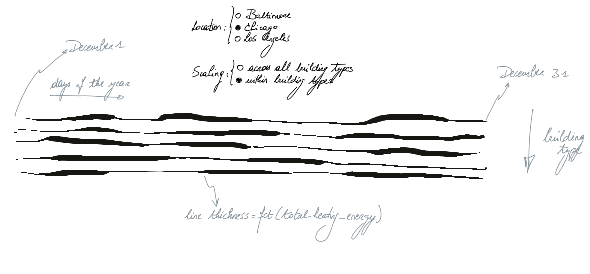 Location: Baltimore
Chicago
Los Angeles
Scaling: across all building types
within building types
December 1
days of the year
December 31
building
type
line thickness = fct (total_heating_energy)